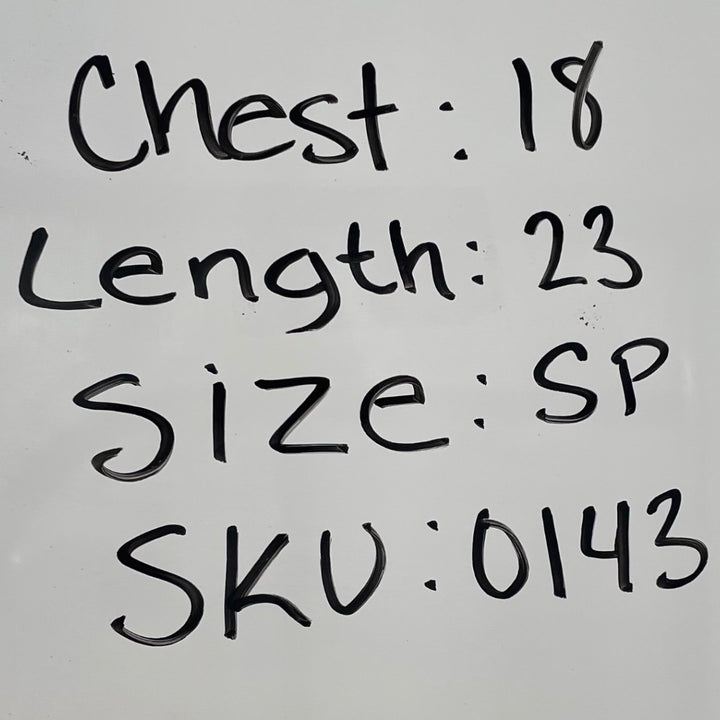 Chest: 18
Length: 23
Size: SP
SKU: 0143